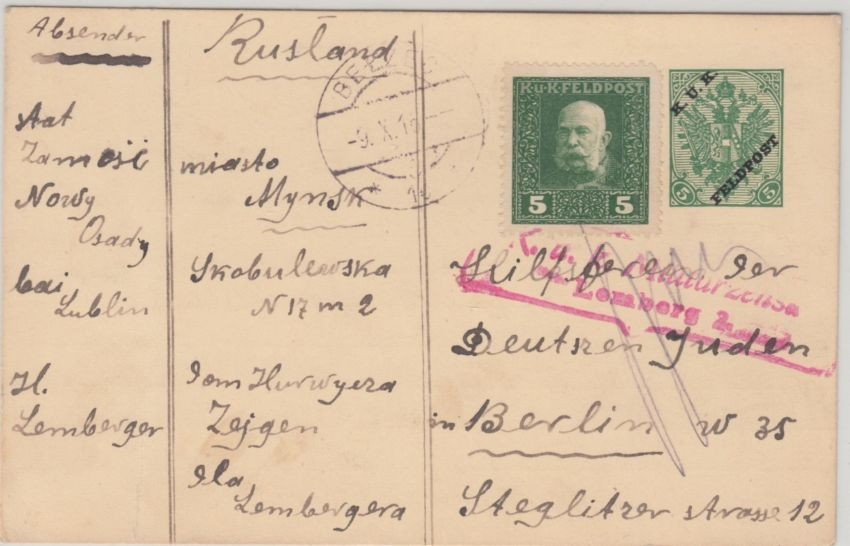 Absender
stat
Zamość
Nowy
Osady
bai
Lublin
H.
Lemberger
Rusland
miasto
Mynsk
Skobulewska
N 17 m 2
Dom Hurwycza
Zejgen
Dla
Lembergera
-9.X.16
K.u.K. FELDPOST
5 5
K.U.K.
FELDPOST
5 5
Hilfsferein der
Deutszen Juden
in Berlin W 35
Steglitzer strasse 12
K. u. K.
Lemberg